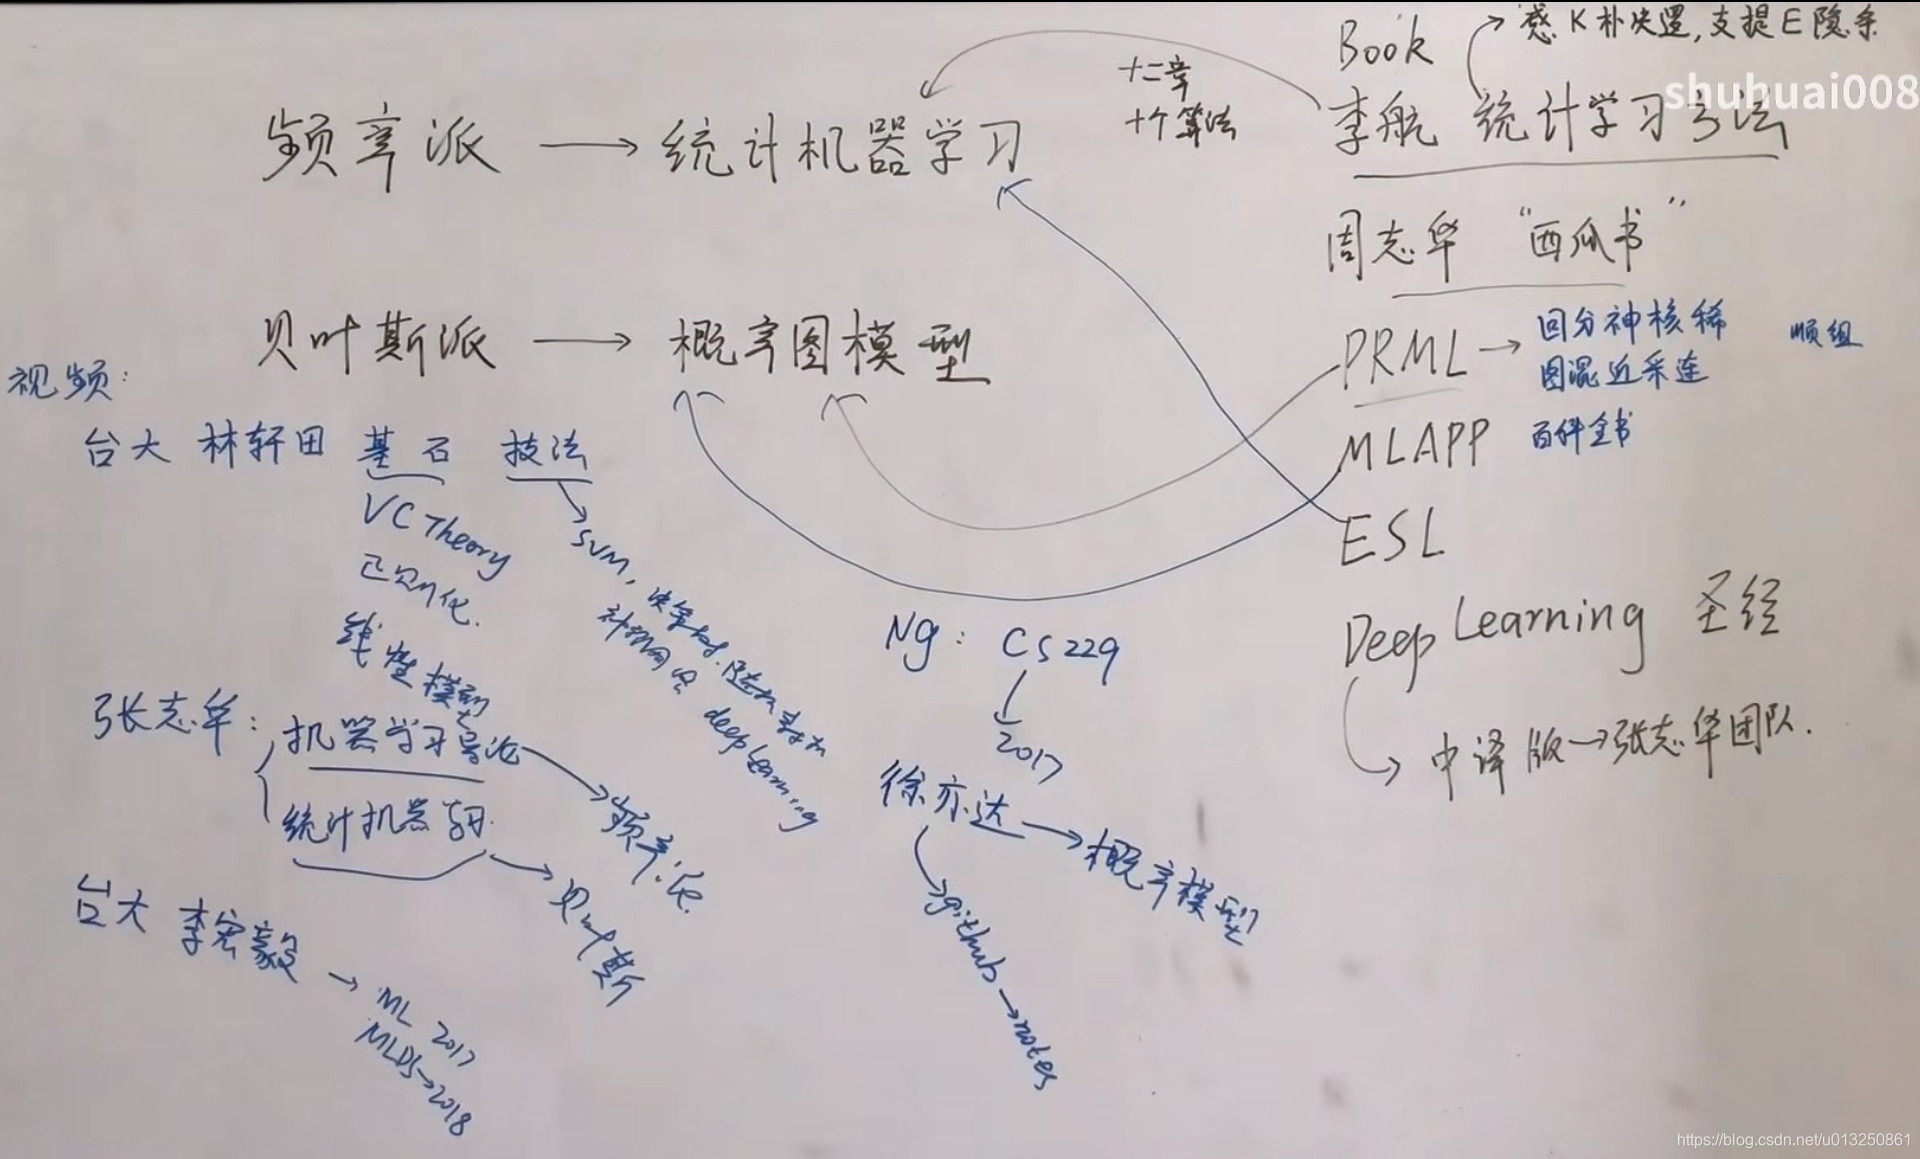 Book
感K朴决逻,支提E隐条
shuhuai008
李航 统计学习方法
十二章
十个算法
频率派 → 统计机器学习
周志华 “西瓜书”
贝叶斯派 → 概率图模型
PRML → 回分神核稀
图混近采连
顺组
MLAPP 百科全书
ESL
Deep Learning 圣经
中译版 → 张志华团队.
视频:
台大 林轩田 基石 技法
VC Theory
正则化.
线性模型
SVM, 决策树, 随机森林
神经网络 deep learning
张志华: 机器学习导论
频率派.
统计机器学习
贝叶斯
台大 李宏毅
→ ML 2017
MLDS→2018
Ng: CS229
2017
徐亦达 → 概率模型
github → notes
https://blog.csdn.net/u013250861